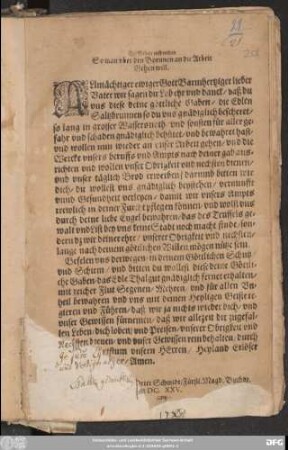 Ein Gebet zusprechen
So man vber den Bornnen an die Arbeit
Gehen will.
ALmächtiger ewiger Gott Barmhertziger lieber
Vater wir sagen dir Lob ehr vnd danck / daß du
vns diese deine göttliche Gaben / die Edlen
Saltzbrunnen so du vns gnädiglich bescheret /
so lang in grosser Wassersnoth vnd sonsten für aller ge-
fahr vnd schaden gnädiglich behütet / vnd bewahret hast /
vnd wollen nun wieder an vnser Arbeit gehen / vnd die
Wercke vnsers beruffs vnd Ampts nach deiner gab aus-
richten vnd wollen vnser Obrigkeit vnd nechsten dienen /
vnd vnser täglich Brod erwerben / darumb bitten wir
dich / du wollest vns gnädiglich beystehen / vernunfft
vnnd Gesundheit verleyhen / damit wir vnsers Ampts
trewlich in deiner Furcht pflegen können / vnd wolst vns
durch deine liebe Engel bewahren / das des Teuffels ge-
walt vnd List bey vns keine Stadt noch macht finde, son-
dern dz wir deiner ehre / vnserer Obrigkeit vnd nechsten /
lange nach deinem göttlichen Willen mögen nütze sein
Befelen vns derwegen / in deinem Göttlichen Schutz
vnd Schirm / vnd bitten du wollest diese deine Göttli-
che Gaben / das Edle Thalgut gnädiglich ferner erhalten /
mit reicher Flut Segenen / Mehren / vnd für allen Vn-
heil bewahren vnd vns mit deinem Heyligen Geiste re-
gieren vnd Führen / daß wir ja nichts wieder dich / vnd
vnser Gewissen fürnemen / daß wir allezeit die zugefal-
len Leben / dich loben / vnd Preisen / vnserer Obrigkeit vnd
Nechsten dienen / vnd vnser Gewissen rein behalten / durch
Jesum Christum vnsern HErren / Heyland Erlöser
Amen.
Peter Schmidt / Fürstl. Magd. Buchdr.
M DC. XXV.